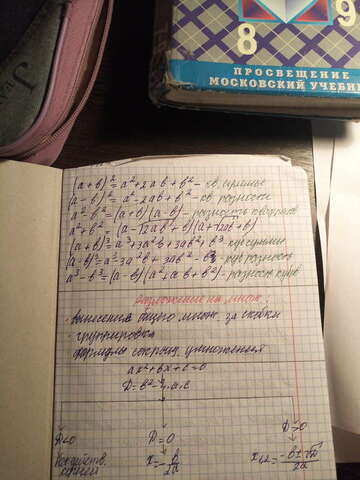 8
9
ПРОСВЕЩЕНИЕ
МОСКОВСКИЙ УЧЕБНИ
(a+b)²=a²+2ab+b²- кв. суммы
(a-b)²=a²-2ab+b²- кв. разности
a²-b²=(a+b)(a-b)- разность квадратов
a²+b²=(a-√2ab+b)(a+√2ab+b)
(a+b)³=a³+3a²b+3ab²+b³ куб суммы
(a-b)³=a³-3a²b+3ab²-b³ куб разности
a³-b³=(a-b)(a²+ab+b²)- разность кубов
Разложение на множ.:
- вынесение общего множ. за скобки
- группировка
формулы сокращ. умножения
ax²+bx+c=0
D=b²-4·a·c
D<0
D=0
D>0
x=-b/2a
x1,2=-b±√D/2a